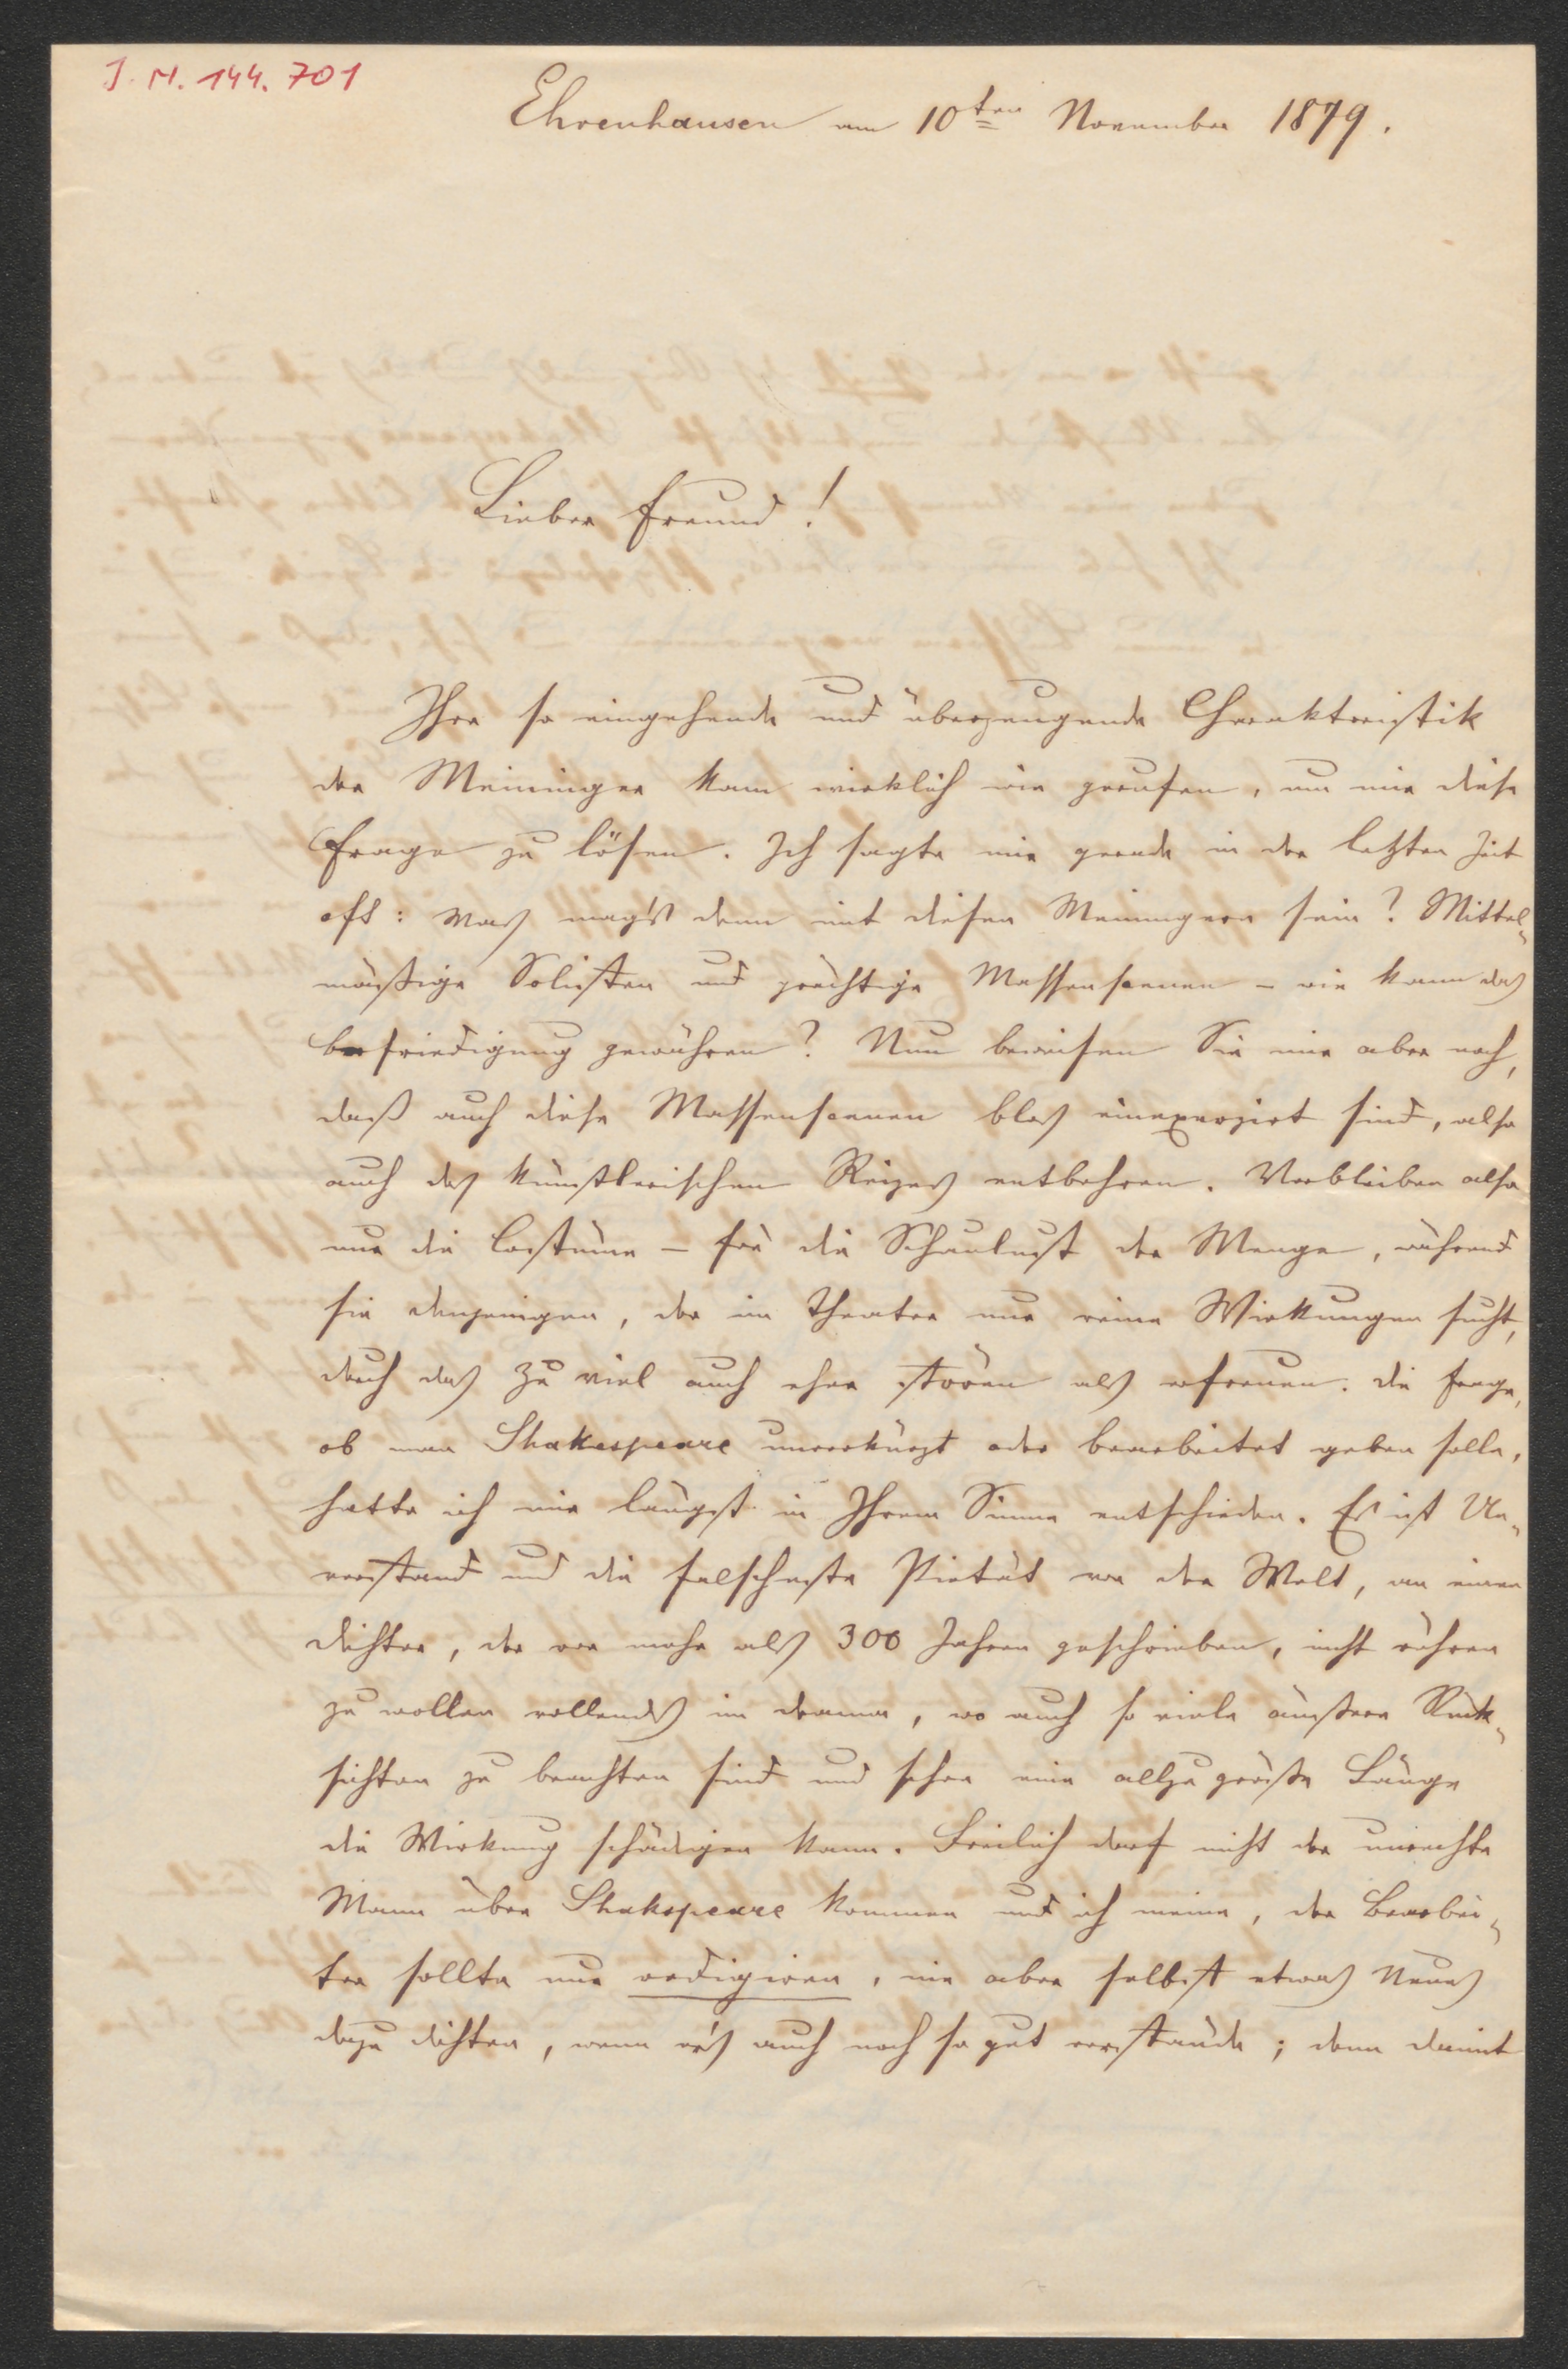 J. N. 144.701
Ehrenhausen am 10ten November 1879.
Lieber Freund!
Ihre so eingehende und überzeugende Charakteristik
der Meininger kam wirklich wie gerufen, um mir diese
Frage zu lösen. Ich sagte mir gerade in der letzten Zeit
oft: was mag's denn mit diesen Meiningern sein? Mittel-
mäßige Solisten und prächtige Massenscenen – wie kann das
Befriedigung gewähren? Nun beweisen Sie mir aber noch,
daß auch diese Massenscenen blos einexerzirt sind, also
auch des künstlerischen Reizes entbehren. Verbleiben also
nur die Costüme – für die Schaulust der Menge, während
sie denjenigen, der im Theater nur reine Wirkungen sucht,
durch das zu viel auch eher stören als erfreuen. Die Frage,
ob man Shakespeare unverkürzt oder bearbeitet geben solle,
hatte ich mir längst in Ihrem Sinne entschieden. Es ist Un-
verstand und die falscheste Pietät von der Welt, an einen
Dichter, der vor mehr als 300 Jahren geschrieben, nicht rühren
zu wollen vollends im Drama, wo auch so viele äußere Rück-
sichten zu beachten sind und schon eine allzu große Länge
die Wirkung schädigen kann. Freilich darf nicht der unrechte
Mann über Shakspeare kommen und ich meine, der Bearbei-
ter sollte nur redigiren, nie aber selbst etwas Neues
dazu dichten, wenn er's auch noch so gut verstände; denn damit